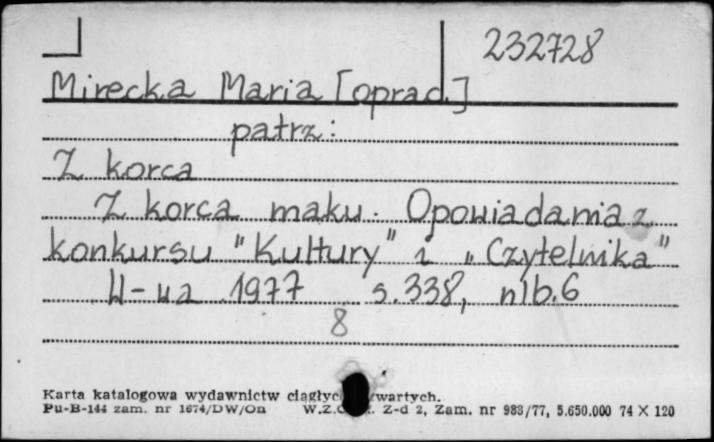 232728
Mirecka Maria [oprad.]
patrz:
Z korca
Z korca maku. Opowiadania z
konkursu "Kultury" i „Czytelnika"
W-wa 1977 s.338, nlb.6
8
Karta katalogowa wydawnictw ciągłych zwartych.
Pu-B-144 zam. nr 1674/DW/On W.Z. Z-d 2, Zam. nr 983/77, 5.650.000 74 X 120